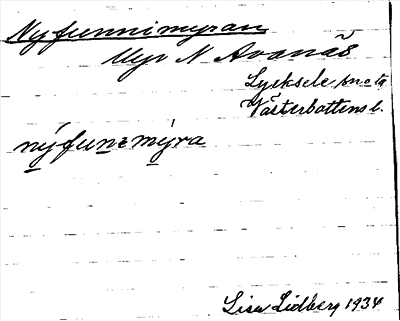 Nyfunnimyran
Myr N Avanäs
Lycksele
Västerbottens l.
nýfunemýra
Lisa Lidberg 1934